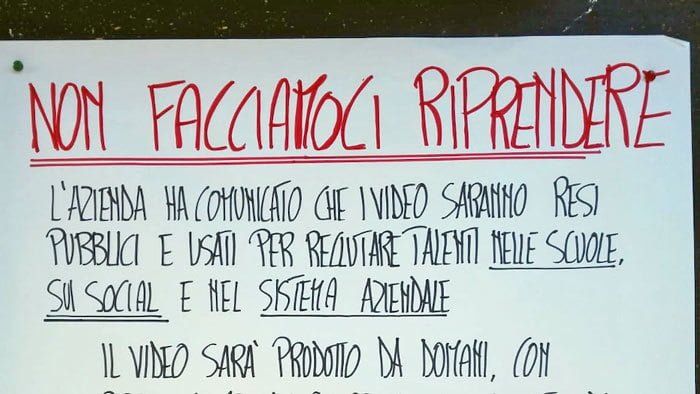 NON FACCIAMOCI RIPRENDERE
L'AZIENDA HA COMUNICATO CHE I VIDEO SARANNO RESI
PUBBLICI E USATI PER RECLUTARE TALENTI NELLE SCUOLE,
SUI SOCIAL E NEL SISTEMA AZIENDALE
IL VIDEO SARÀ PRODOTTO DA DOMANI, CON